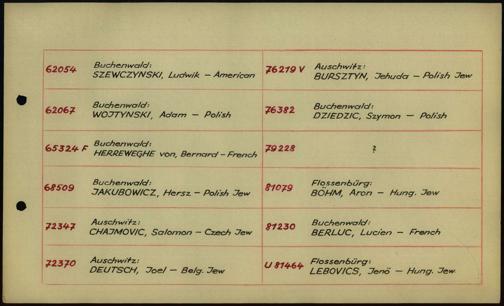 62054 Buchenwald:
SZEWCZYNSKI, Ludwik - American
62067 Buchenwald:
WOJTYNSKI, Adam - Polish
65324 F Buchenwald:
HERREWEGHE von, Bernard - French
68509 Buchenwald:
JAKUBOWICZ, Hersz - Polish Jew
72347 Auschwitz:
CHAJMOVIC, Salomon - Czech Jew
72370 Auschwitz:
DEUTSCH, Joel - Belg. Jew
76219 V Auschwitz:
BURSZTYN, Jehuda - Polish Jew
76382 Buchenwald:
DZIEDZIC, Szymon - Polish
79228 ?
81079 Flossenbürg:
BÖHM, Aron - Hung. Jew
81230 Buchenwald:
BERLUC, Lucien - French
U 81464 Flossenbürg:
LEBOVICS, Jenő - Hung. Jew